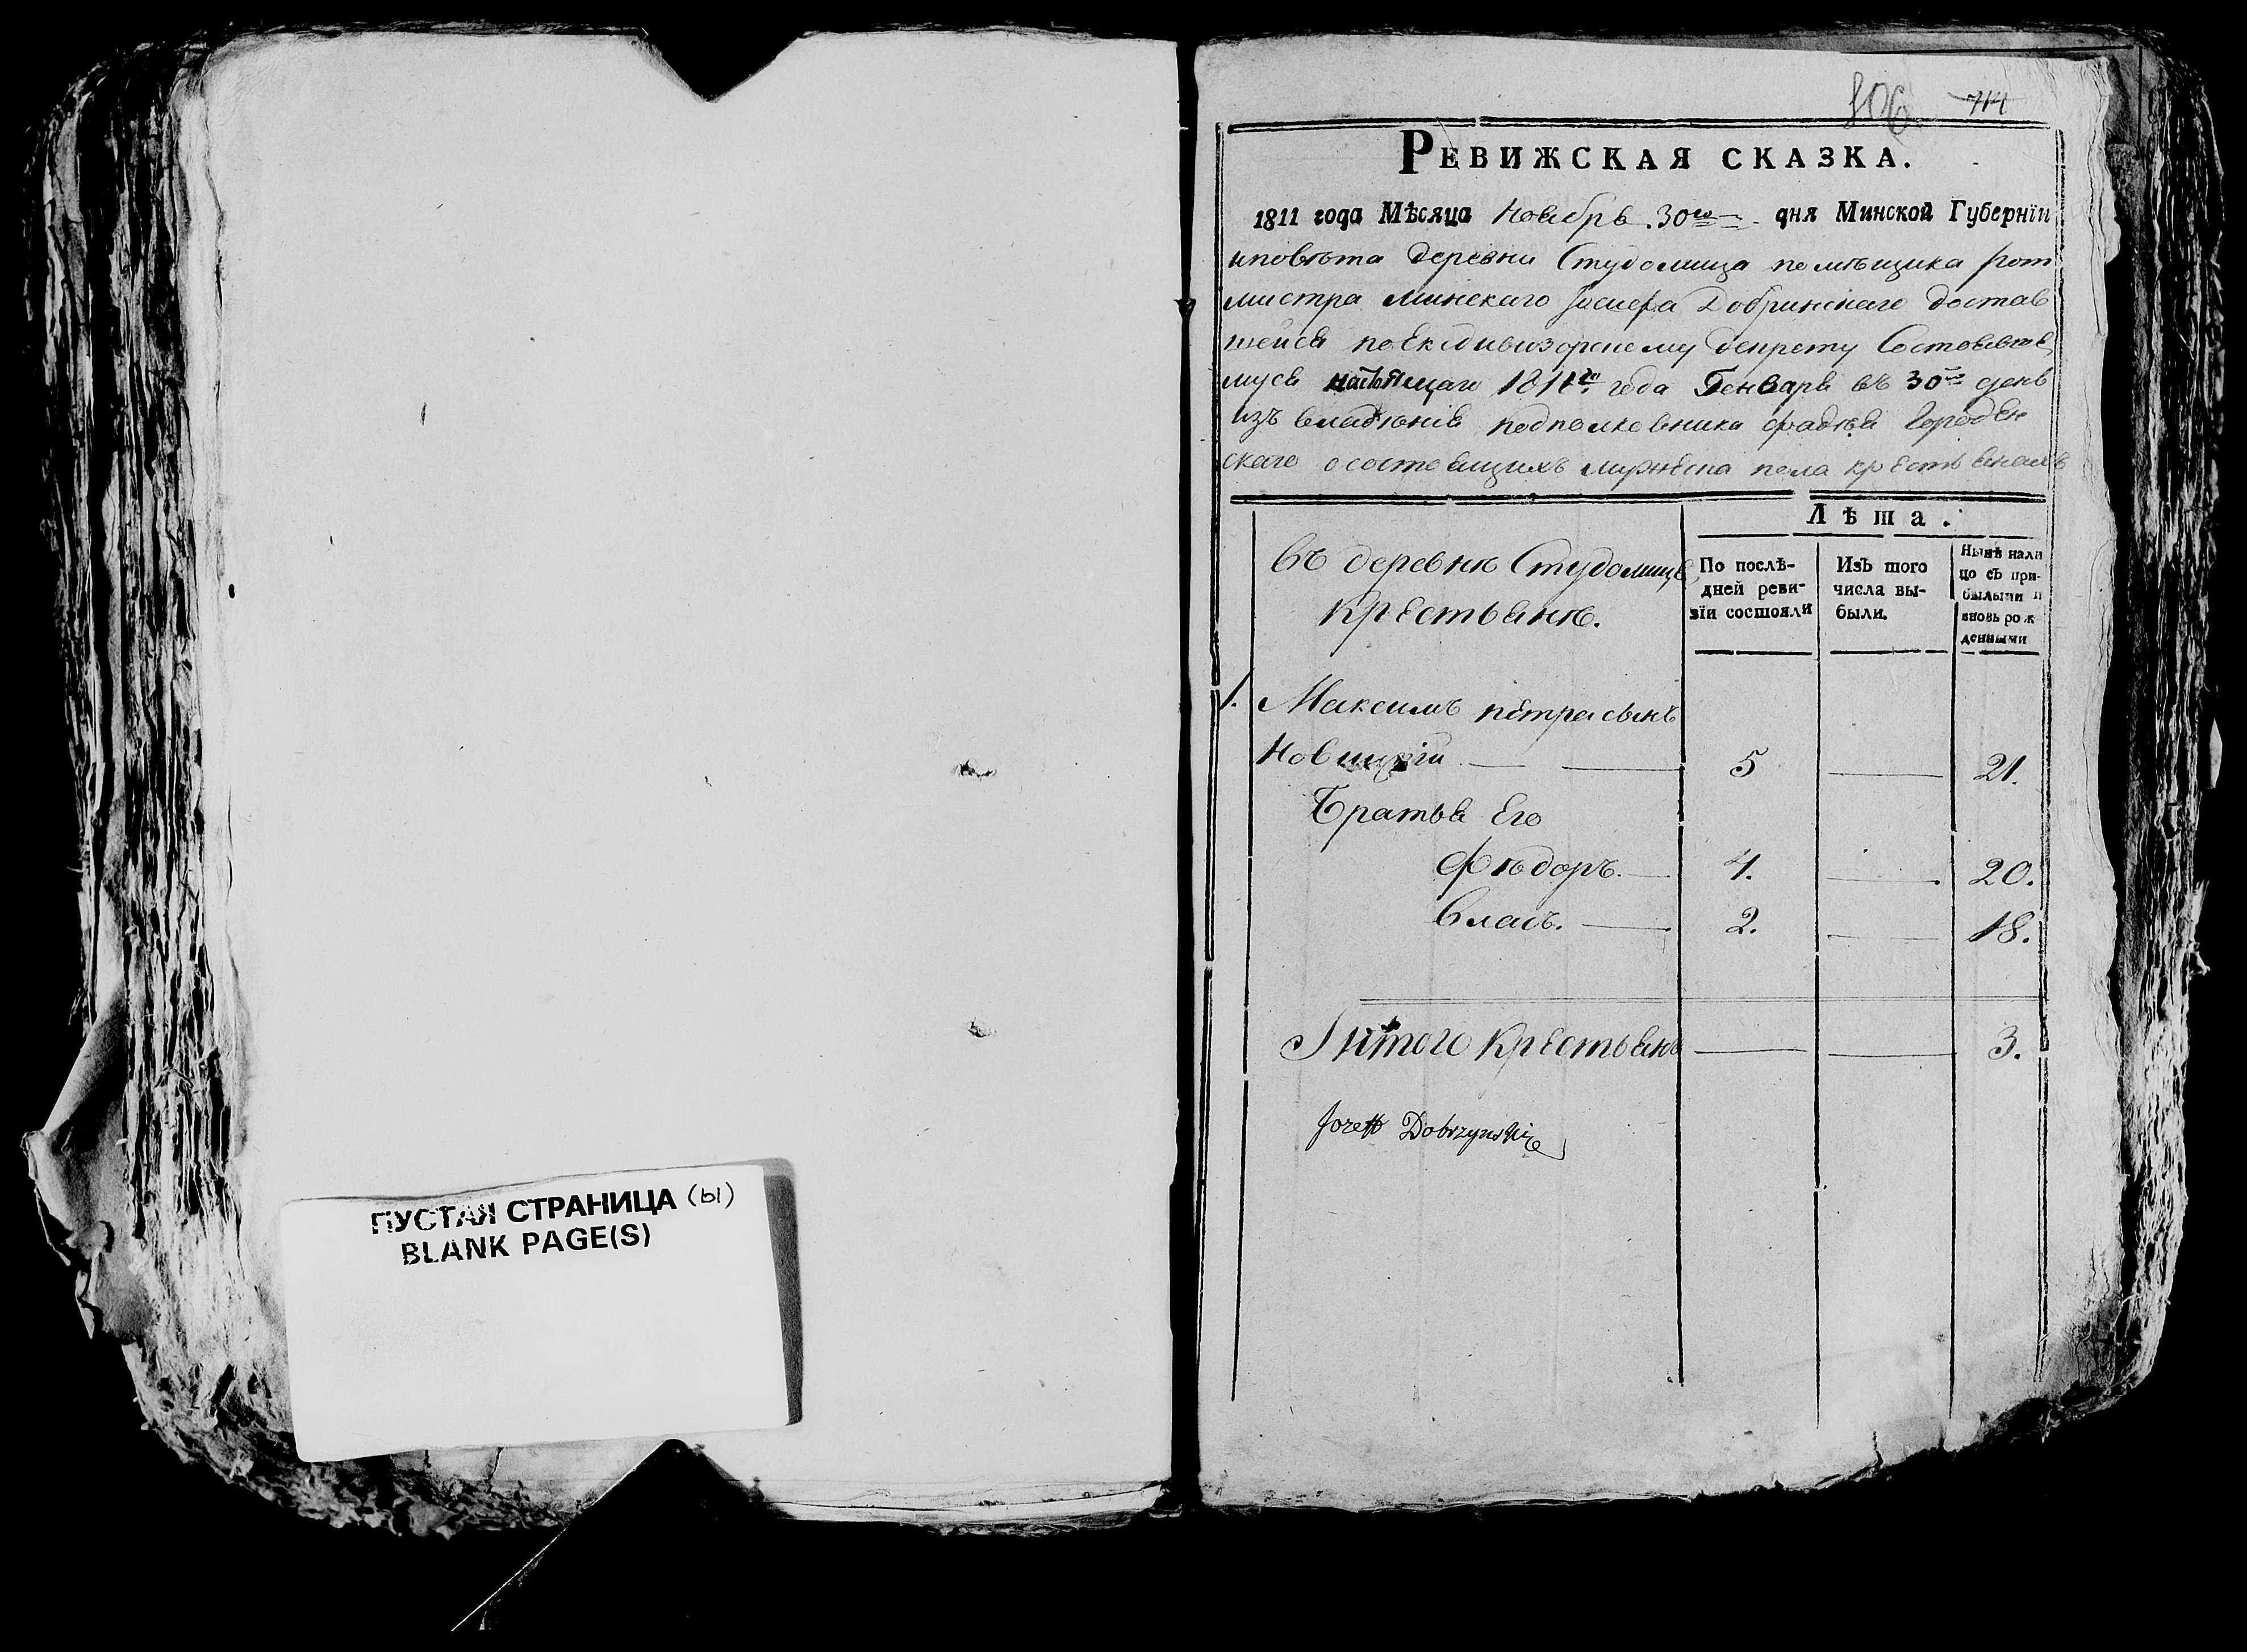 ПУСТАЯ СТРАНИЦА (ы)
BLANK PAGE(S)
806 714
РЕВИЖСКАЯ СКАЗКА.
1811 года Мѣсяца Ноября 30го дня Минской Губернїи
иповѣта деревни Студолища помѣщика рот
мистра минскаго Іосифа Добринскаго достав
шейся поЕксдивизорскому декрету Состоявше
муся настоящаго 1811го года Генваря въ 30 день
изъ владѣнія подполковника Фадѣя Городен
скаго осостоящихъ мужеска пола крестьянахъ
Лѣта.
Въ деревнѣ Студолищѣ
крестьянѣ.
По послѣ-
дней реви-
зїи состояли
Изъ того
числа вы-
были.
Нынѣ нали
цо съ при-
былыми и
вновь рож
денными
1. Максимъ Петра сынъ
Новицкій 5 21.
Братья Его
Фѣдоръ. 4. 20.
Власъ. 2. 18.
Іитого Крестьянъ 3.
Jozeff Dobrzynski